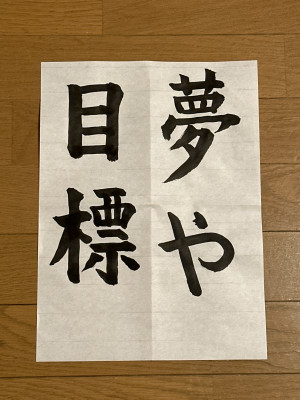 夢や
目標